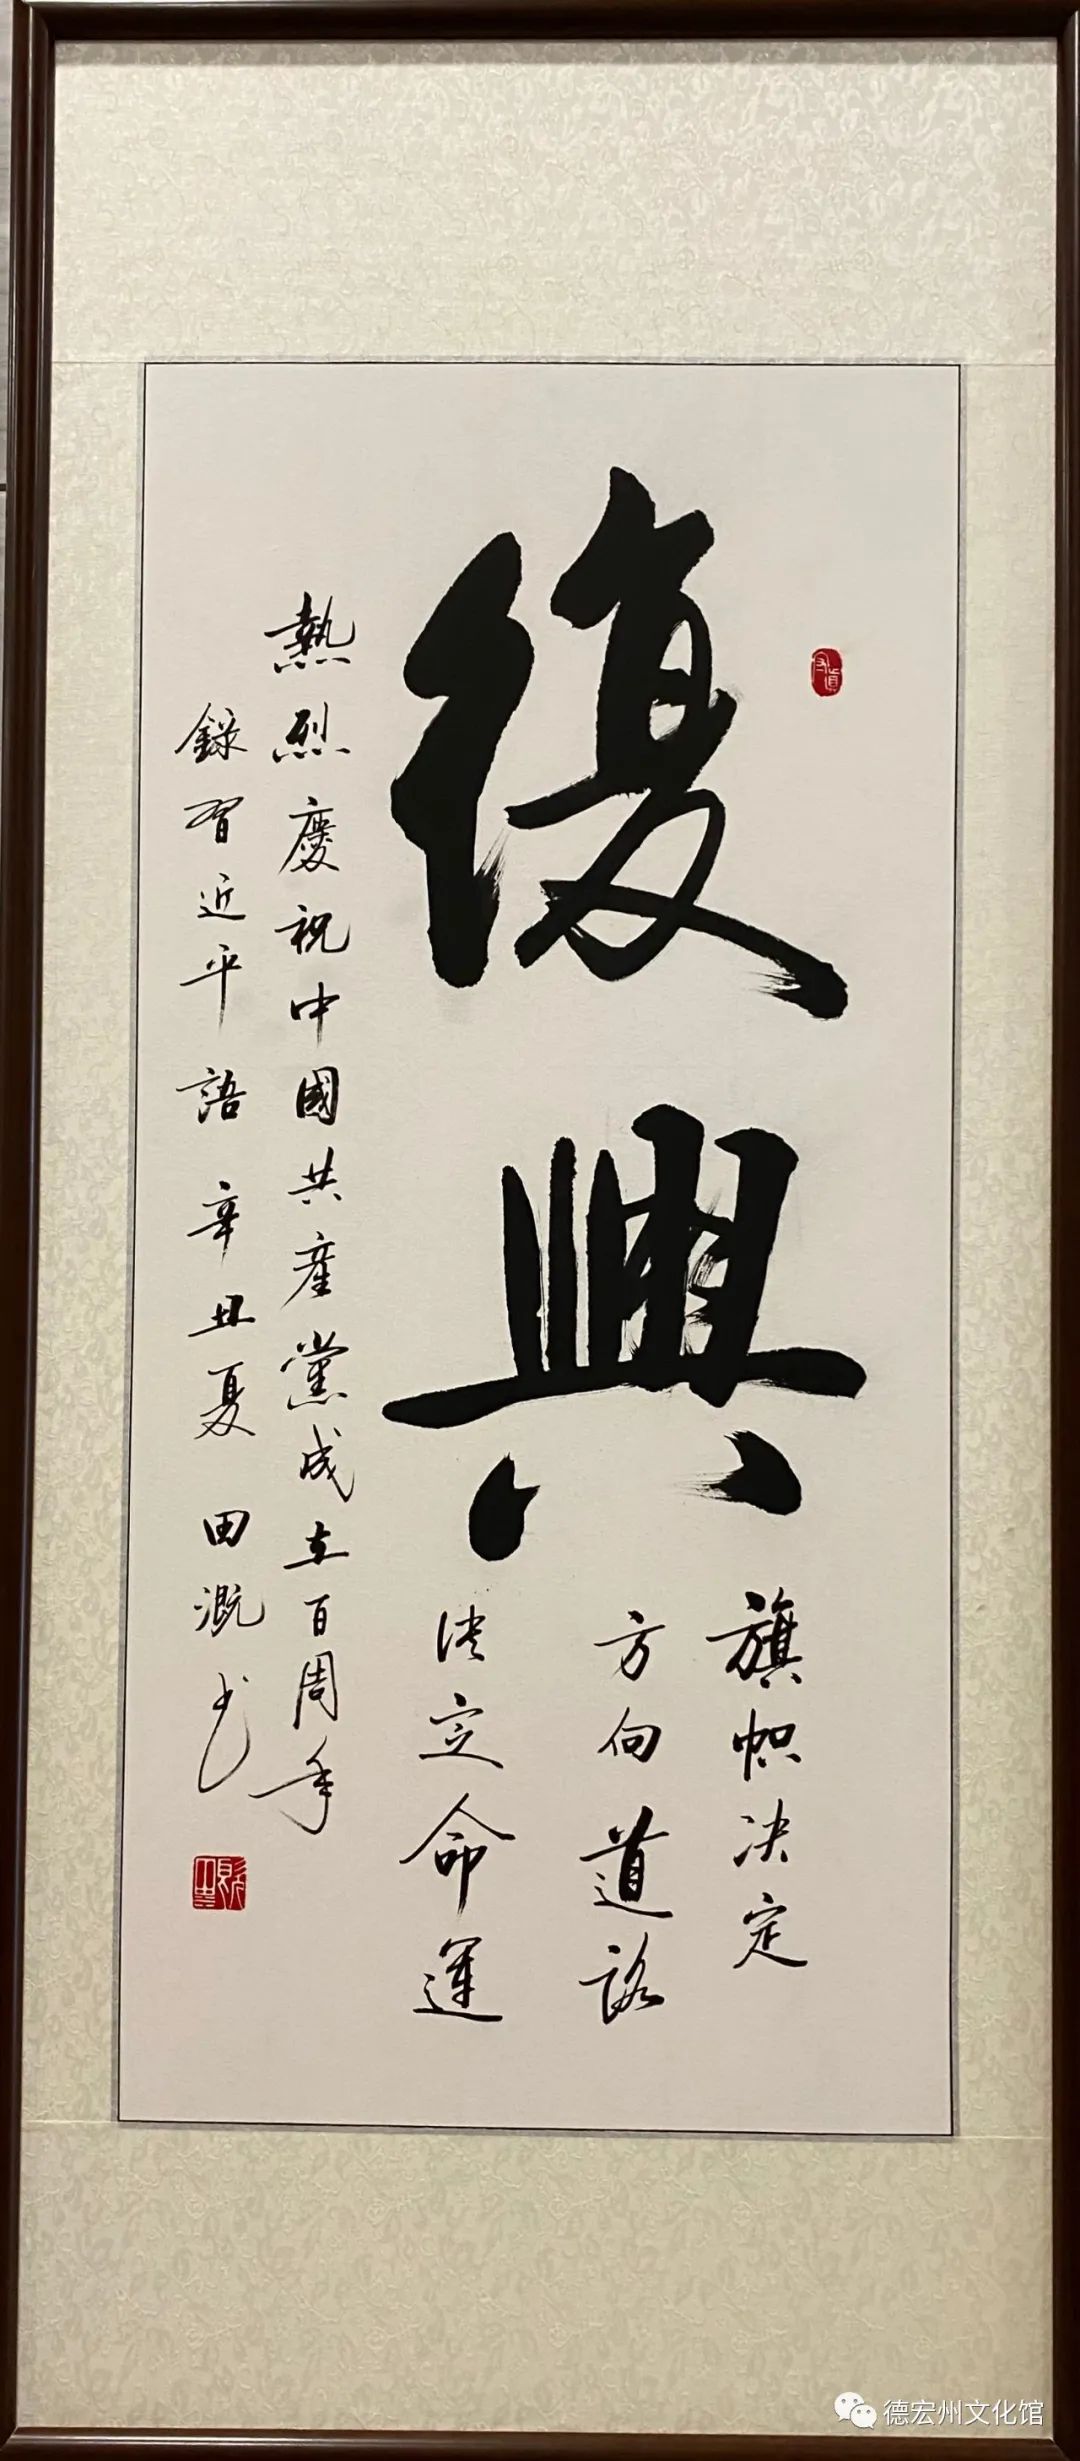 復興
旗帜决定
方向道路
决定命運
熱烈慶祝中國共産黨成立百周年
錄習近平語 辛丑夏 田溉书
德宏州文化馆